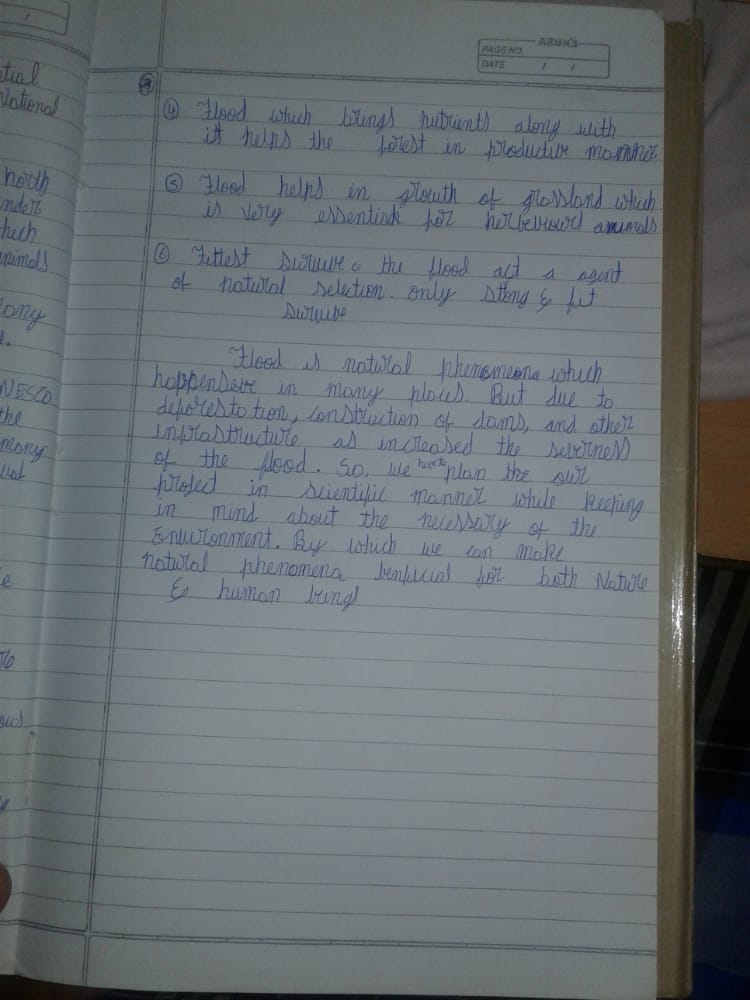 ARUN'S
PAGE NO.
DATE / /
tial
National
north
under
hich
animals
many
UNESCO
the
many
④ Flood which brings nutrients along with
it helps the forest in productive manner
⑤ Flood helps in growth of grassland which
is very essential for herbeviours animals
⑥ Fittest survive & the flood act a agent
of natural selection. only stong & fit
survive
Flood is natural phenomeona which
happens in many places. But due to
deforestation, construction of dams, and other
infrastructure as increased the severness
of the flood. So, we have to plan the our
project in scientific manner while keeping
in mind about the necessary of the
Enivironment. By which we can make
natural phenomena benificial for both Nature
& human being